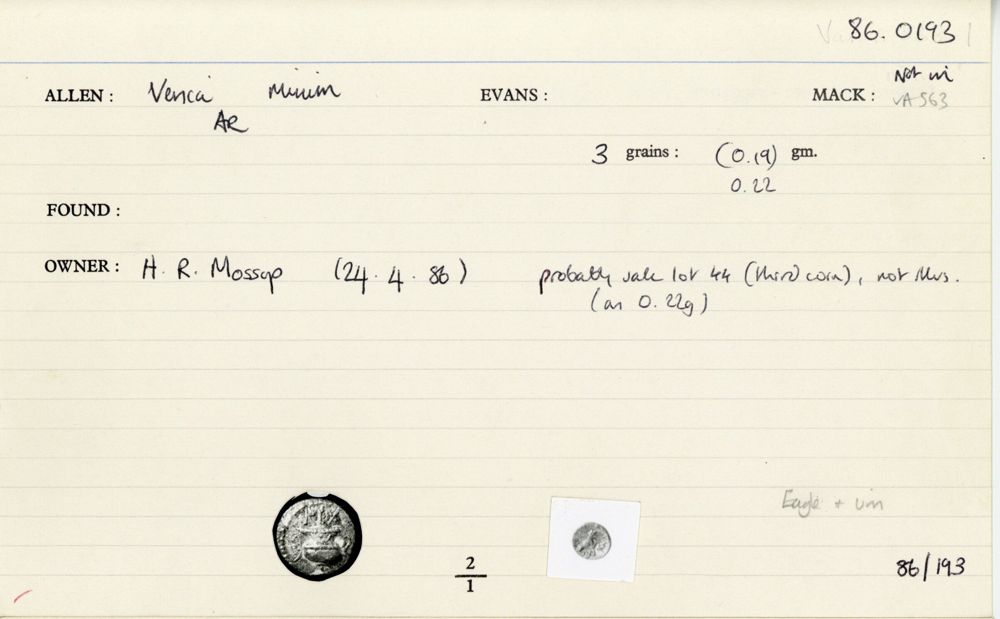 86. 0193
ALLEN : Verica Minim EVANS : MACK : Not in
VA 563
AR
3 grains : (0.19) gm.
0.22
FOUND :
OWNER : H. R. Mossop (24. 4. 86) probably sale lot 44 (third coin), not illus.
(as 0.22g)
Eagle + urn
2
1
86/193